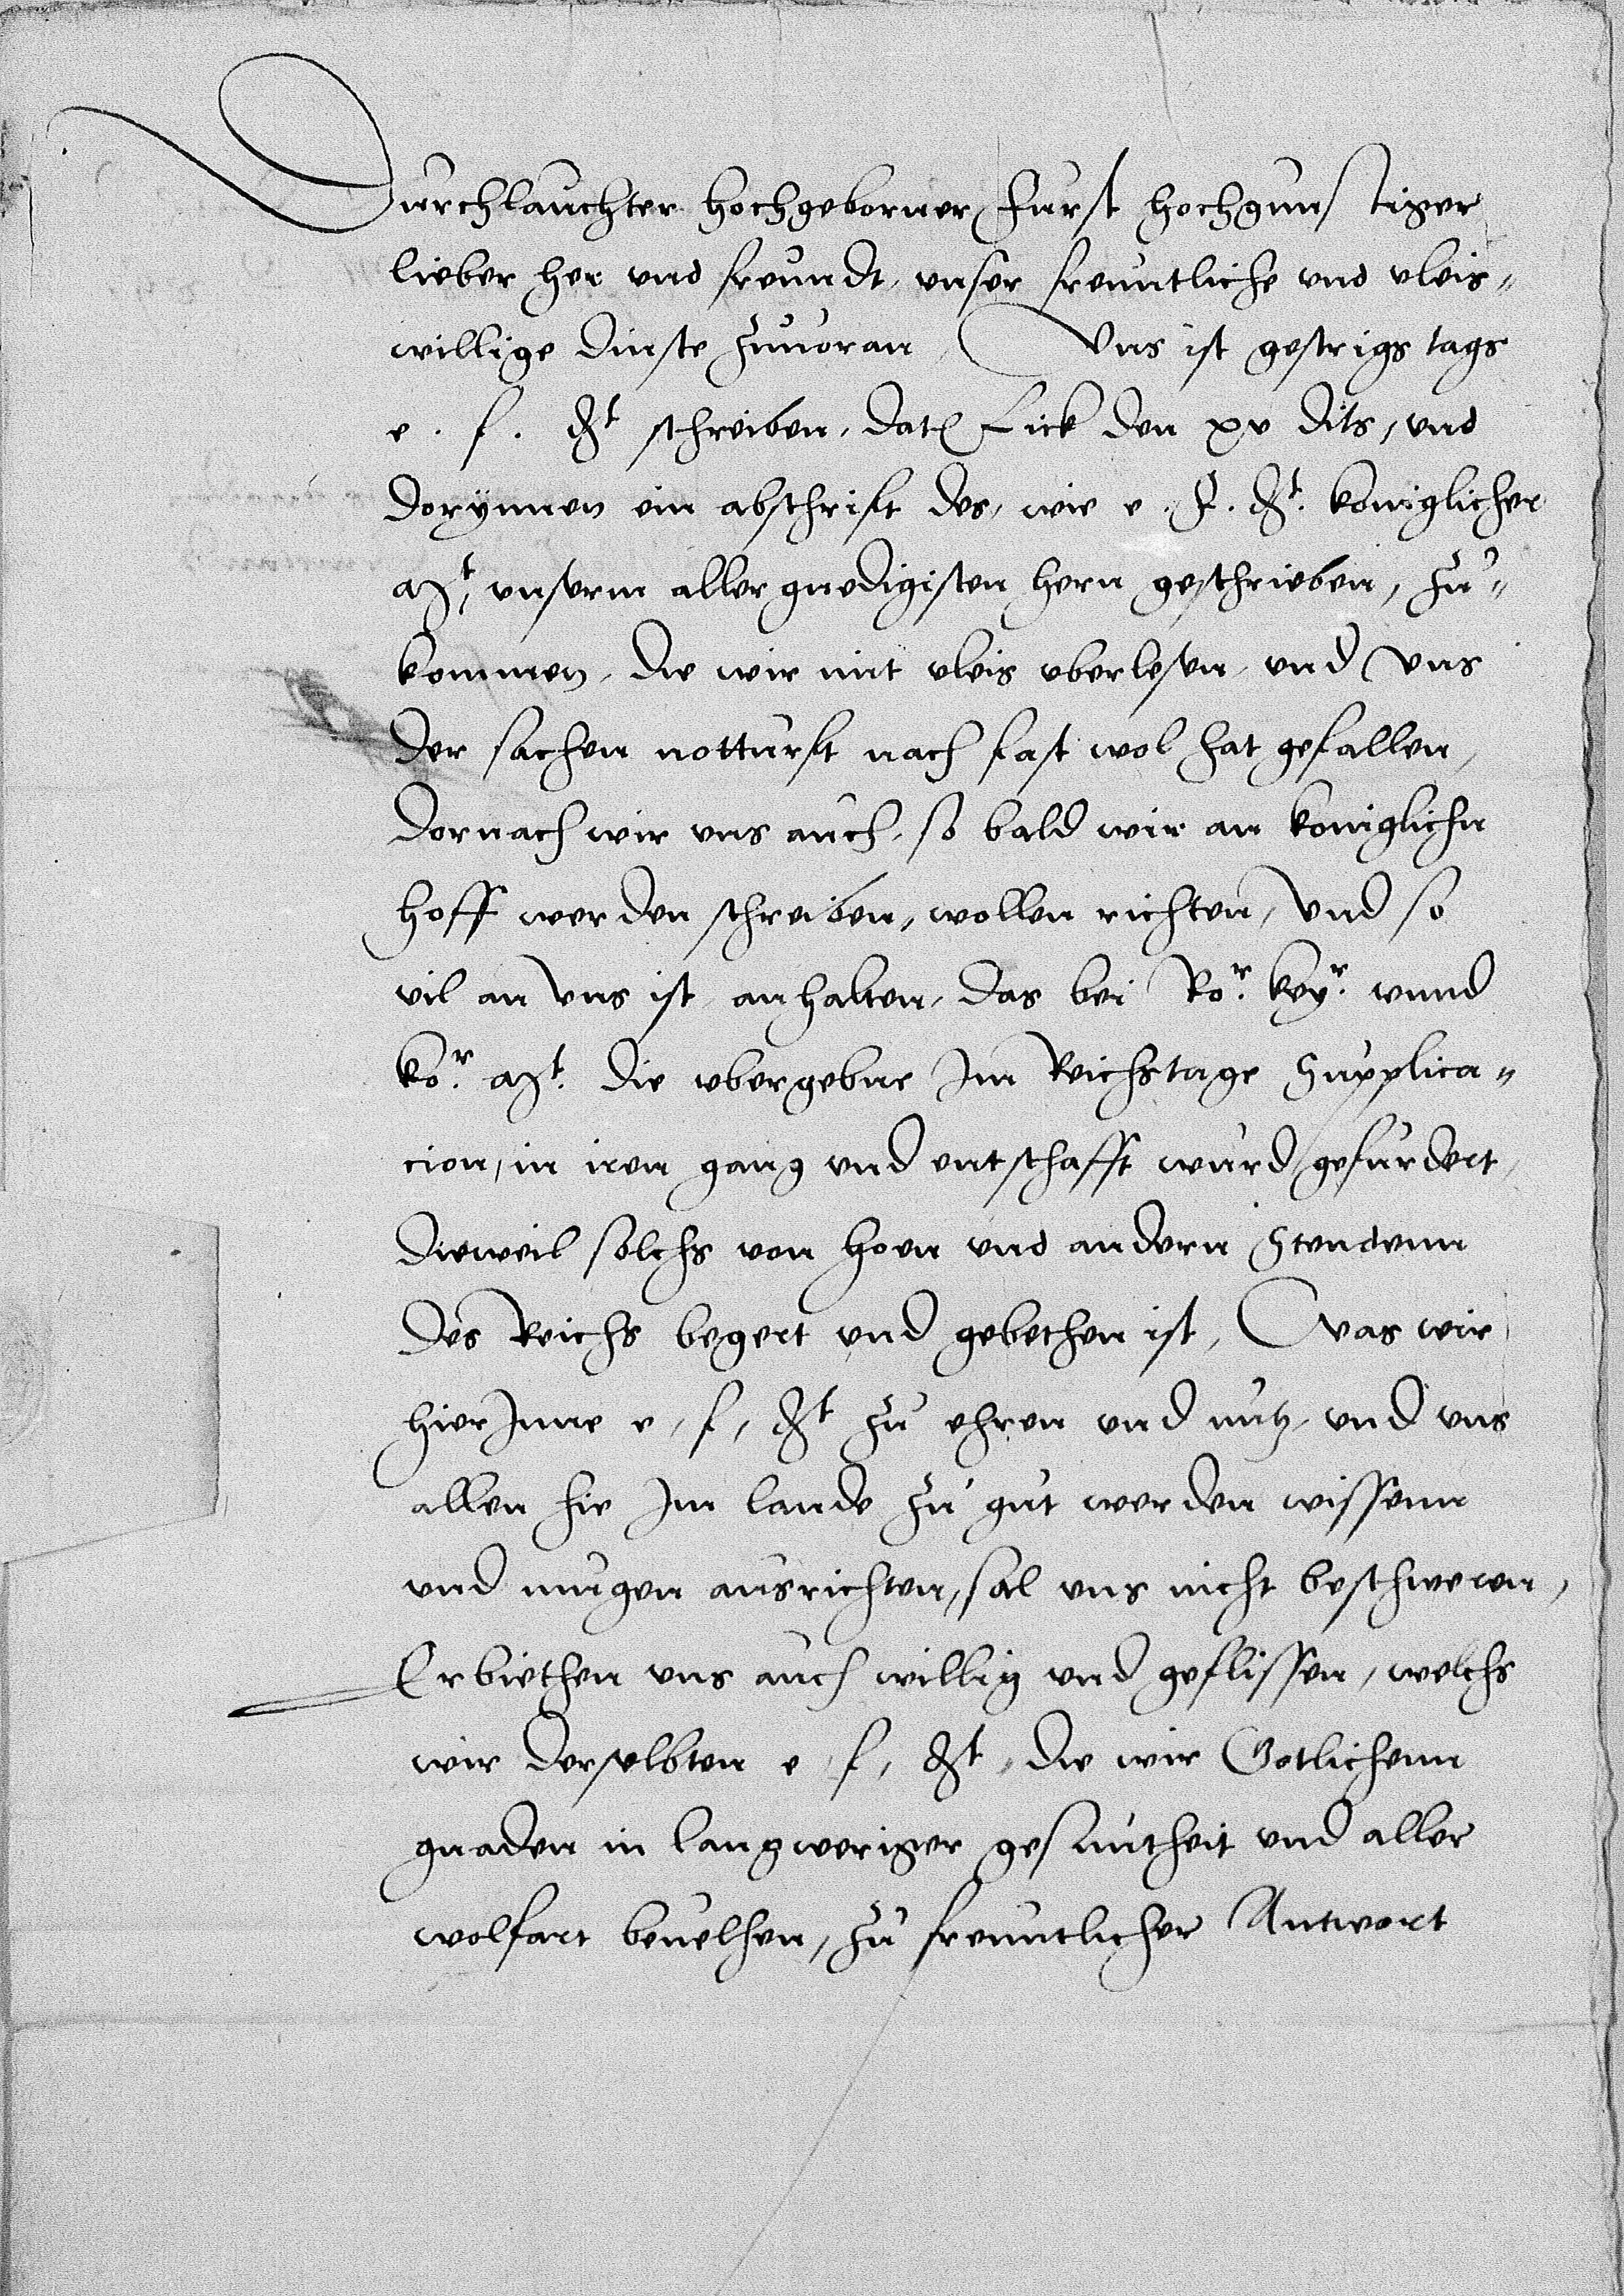 Durchlauchter hochgeborner Furst hochgunstiger
lieber her vnd freundt, vnser freuntliche vnd vleis„
willige dinste zuuoran, Vns ist gestrigs tags
e. f. gt schreiben, dat Lick den xv dits, vnd
dorÿnnen ein abschrift des, wie e. F. gt. koniglicher
mt, vnserm allergnedigisten hern geschrieben, zu„
kommen, die wir mit vleis vberlesen, vnd Vns
der sachen notturft nach fast wol hat gefallen,
dornach wir vns auch, so bald wir an koniglichn
hoff werden schreiben, wollen richten, Vnd so
vil an Vns ist, anhalten, das bei Ro.r key.r vnnd
ko.r mt. die vbergebne Im Reichstage Supplica„
cion, in iren gang vnd entschafft wurd gefurdert,
dieweil solchs von hoen vnd andern Stendenn
des Reichs begert vnd gebethen ist, Was wir
hierInne e, f, gt zu ehren vnd nutz, vnd vns
allen hie Im lande zu gut werden wissenn
vnd mugen ausrichten, sal vns nicht beschweren,
Erbiethen vns auch willig vnd geflissen, welchs
wir derselbten e, f, gt, die wir Gotlichenn
gnaden in langweriger gesuntheit vnd aller
wolfart beuelhen, zu freuntlicher Antwort